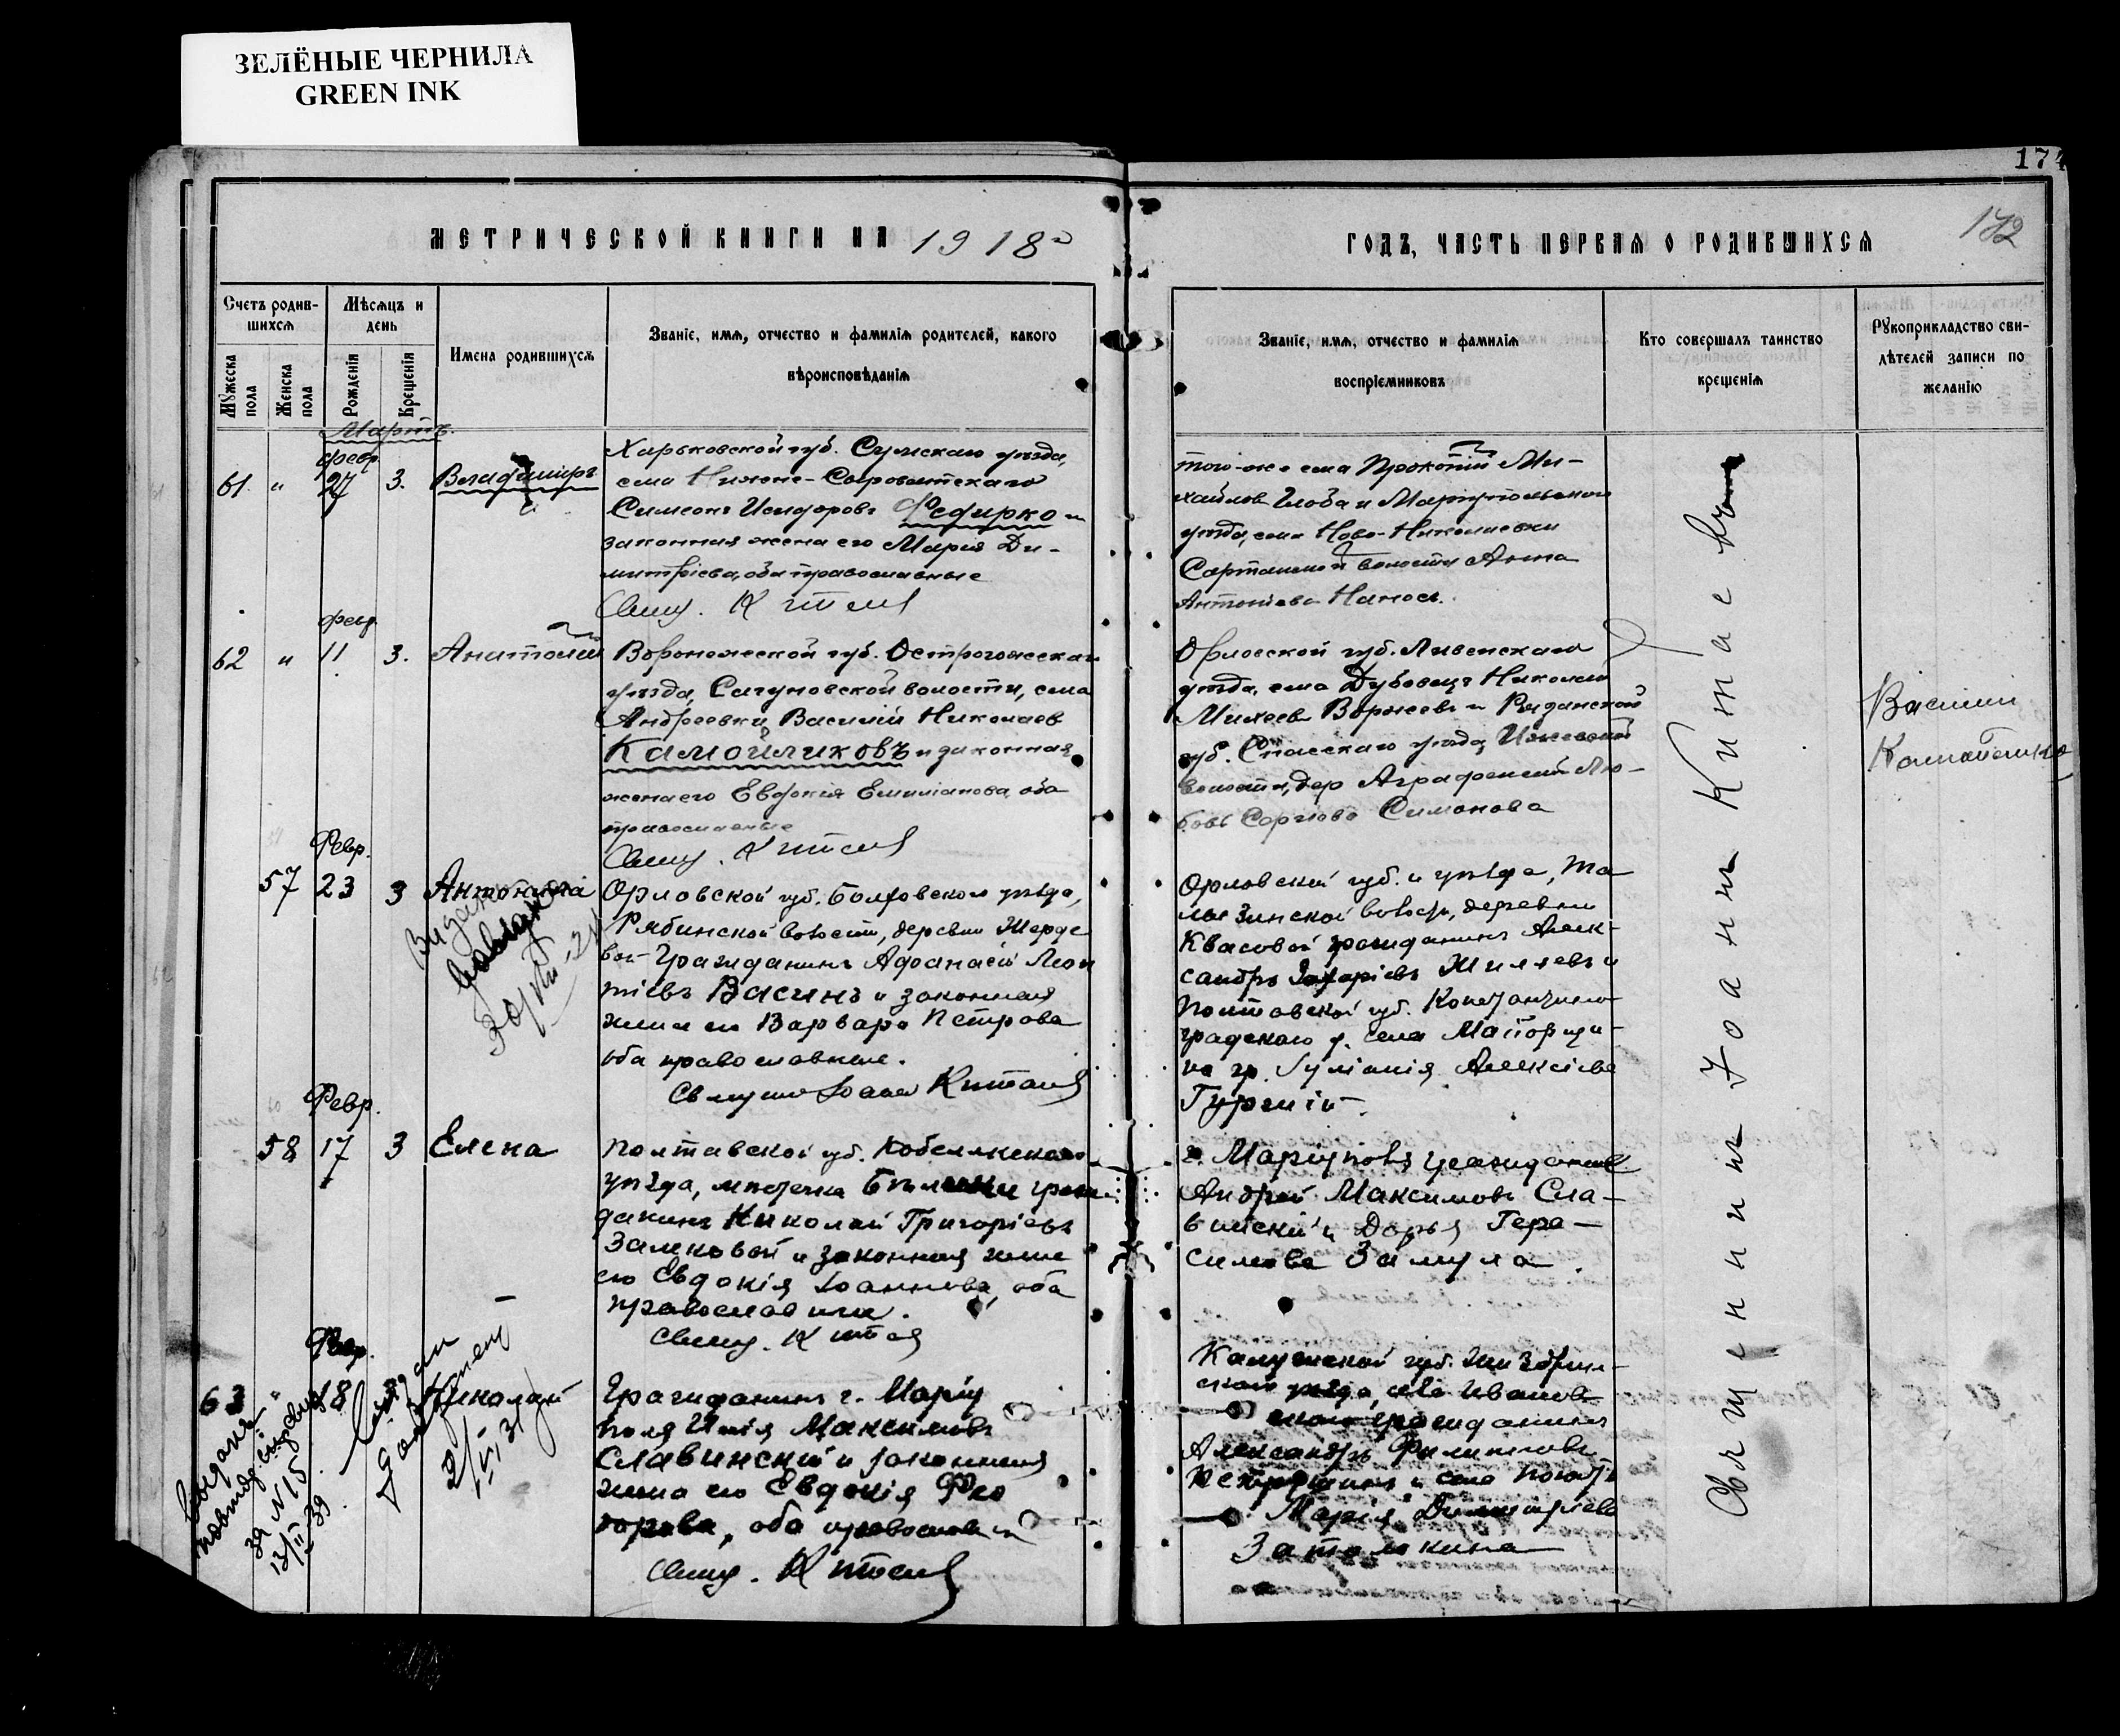 ЗЕЛЁНЫЕ ЧЕРНИЛА
GREEN INK
174
172
МЕТРИЧЕСКОЙ КНИГИ НА 1918
ГОДЪ, ЧАСТЬ ПЕРВАЯ О РОДИВШИХСЯ
Счетъ родив-
шихся
Мѣсяцъ и
день
Мужеска
пола
Женска
пола
Рожденія
Крещенія
Имена родившихся
Званіе, имя, отчество и фамилія родителей, какого
вѣроисповѣданія
Званіе, имя, отчество и фамилія
воспріемниковъ
Кто совершалъ таинство
крещенія
Рукоприкладство сви-
дѣтелей записи по
желанію
Мартъ.
февр.
61. " 27 3. Владиміръ
Харьковской губ. Сумскаго уѣзда,
села Нижне-Сыроватскаго
Симеонъ Исидоровъ Федирко и
законная жена его Марія Ди-
митріева, оба православные
Свящ. Китаев
того-же села Прокопій Ми-
хайлов Глоба и Маріупольскаго
уѣзда, села Ново-Николаевки
Сартанской волости Анна
Антоніева
февр.
62 " 11 3. Анатолій
Воронежской губ. Острогожскаго
уѣзда, Сагуновской волости, села
Андреевки, Василій Николаев
Камойликовъ и законная
жена его Евфокія Емиліанова, оба
православные
Свящ. Китаев
Орловской губ. Ливенскаго
уѣзда, села Дубовецъ Николай
Михеев и Рязанской
губ. Спасскаго уѣзда, Ижевской
волости, дер. Аграфениной Лю-
бовь Сергіева Симонова
Василий
Февр.
57 23 3 Антонина
Орловской губ. Болховского уѣзда,
Рябинской волости, деревни
Гражданинъ Афанасій Леон
тіевъ Васинъ и законная
жена его Варвара Петрова
оба православные.
Священ Іоанн Китаев
Орловской губ. и уѣзда,
волости, деревни
Квасовой гражданинъ Алек-
сандръ Захаріевъ Жиляевъ и
Полтавской губ. Константино
градскаго у. села
гр. Іуліанія Алексіева
Февр.
58 17 3 Елена
Полтавской губ. Кобелякскаго
уѣзда, мѣстечка Бѣлики граж
данинъ Николай Григоріевъ
Залековой и законная жена
его Евдокія Іоаннова, оба
православные.
Свящ. Китаев
г. Маріуполь гражданинъ
Андрей Максимовъ Сла-
винскій и Дарья Гера-
симова Замула
Февр.
63 " 18 3 Николай
Гражданинъ г. Маріу
поля Илія Максимовъ
Славинскій и законная
жена его Евдокія Фео
дорова, оба православн
Свящ. Китаев
Калужской губ. Жиздрин-
скаго уѣзда, села Иванов-
скаго гражданинъ
Александръ Филипповъ
и села
Марія Димитріева
Затолокина
Выдано
повтор. свидет
за №15
13/II-39
Выдан
документ
Священникъ Іоаннъ Китаевъ